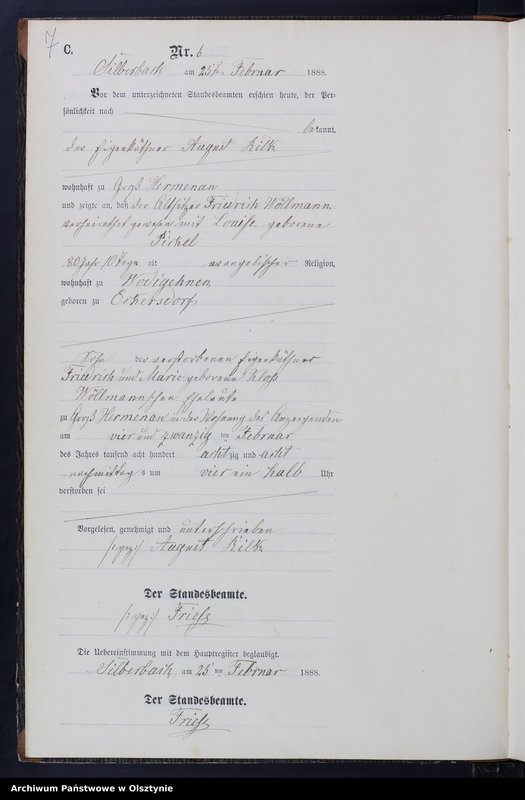 7
C.
Nr. 6
Silberbach am 25ten Februar 1888.
Vor dem unterzeichneten Standesbeamten erschien heute, der Per-
sönlichkeit nach
bekannt,
der Eigenkäthner August Kilk
wohnhaft zu Groß Hermenau
und zeigte an, daß der Altsitzer Friedrich Wöllmann,
verheirathet gewesen mit Louise, geborene
Pickel
80 Jahr 10 Tage alt evangelischer Religion,
wohnhaft zu Wodigehnen
geboren zu Eckersdorf
Sohn der verstorbenen Eigenkäthner
Friedrich und Marie geborene Kloß
Wöllmannschen Eheleute
zu Groß Hermenau in der Wohnung des Anzeigenden
am vier und zwanzig ten Februar
des Jahres tausend acht hundert achtzig und acht
nachmittags um vier ein halb Uhr
verstorben sei
Vorgelesen, genehmigt und unterschrieben
(:gez:) August Kilk
Der Standesbeamte.
(:gez:) Friese
Die Uebereinstimmung mit dem Hauptregister beglaubigt.
Silberbach am 25 ten Februar 1888.
Der Standesbeamte.
Friese
Archiwum Państwowe w Olsztynie